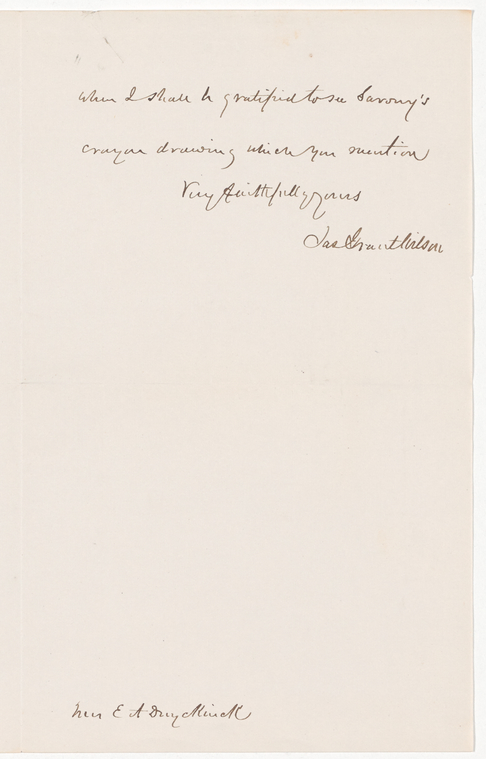 when I shall be gratified to see Sarony's
crayon drawing which you mention
Very faithfully yours
Jas Grant Wilson
E A Duyckinck